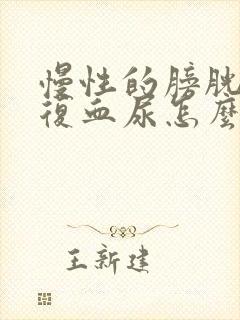 慢性的膀胱
復血尿怎麼
王新建